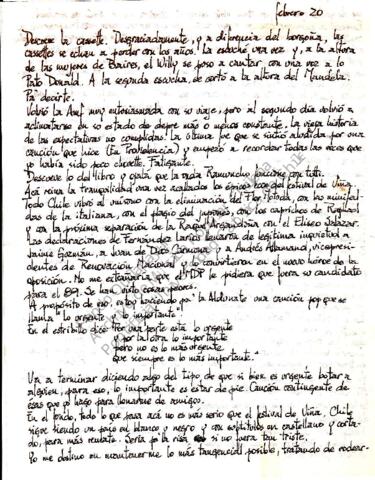 febrero 20
Descreve la cassette. Desgraciadamente, y a diferencia del borgoña, las
cassettes se echan a perder con los años. La escuché una vez y, a la altura
de las mujeres de Baires, el Willy se puso a cantar con una voz a lo
Pato Donald. A la segunda escucha, se cortó a la altura del Mandela.
Pa' decirte.
Volvió la muy entusiasmada con su viaje, pero al segundo día volvió a
aclimatarse en su estado de depre más o menos constante. La vieja historia
de las expectativas no cumplidas. La última fue que se sintió aludida por una
canción que hice (En Trobolencia) y empezó a recordar todas las veces que
yo había sido poco choro. Fatigante.
Descueve lo del libro y ojalá que la rucia Ramuncho funcione con tuti.
Acá reina la tranquilidad una vez acabados los épicos ecos del festival de Viña.
Todo Chile vibró al unísono con la eliminación del Flor Motuda, con las minifal-
das de la italiana, con el plagio del japonés, con los caprichos de Raphael
y con la próxima separación de la Raquel Argandoña con el Eliseo Salazar.
Las declaraciones de Fernández Larios llenaron de legítima inquietud a
Jaime Guzmán, a Juan de Dios Carmona y a Andrés Allamand, vicepresi-
dentes de Renovación Nacional y lo convirtieron en el nuevo héroe de la
oposición. No me extrañaría que el MDP le pidiera que fuera su candidato
para el 89. Se han visto cosas peores.
A propósito de eso, estoy haciendo pa' la Aldunate una canción pop que se
llama "lo urgente y lo importante".
En el estribillo dice: Por una parte está lo urgente
por la otra lo importante
pero no es lo más urgente
que siempre es lo más importante."
Va a terminar diciendo algo del tipo de que si bien es urgente botar a
alguien, para eso, lo importante es estar de pie. Canción contingente de
esas que yo hago para llenarme de amigos.
En el fondo, todo lo que pasa acá no es más serio que el festival de Viña. Chile
sigue siendo un país en blanco y negro y con subtítulos en castellano y corta-
do, para más remate. Sería pa' la risa si no fuera tan triste.
Yo me obstino en mantenerme lo más tangencial posible, tratando de rodear-